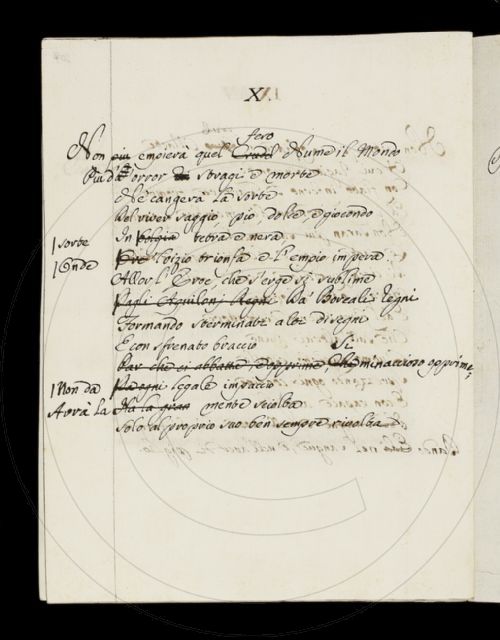 X.
fero
Non più empierà quel Crudel Nume il Mondo
Più d'orror di stragi e morte
Ne cangerà la sorte
Del viver saggio pio dolce e giocondo
In tetra e nera
sorte
Onde l'ozio trionfa e l'empio impera.
Allor l'Eroe, che s'erge sì sublime
Dagli Aquiloni Regni Da' Boreali Regni
Formando sterminate alte disegni
E con sfrenato braccio
Sì
che minaccioso opprime;
Non da legale impaccio
Avrà la Ha la gran mente sciolta
Solo al proprio suo ben sempre rivolta